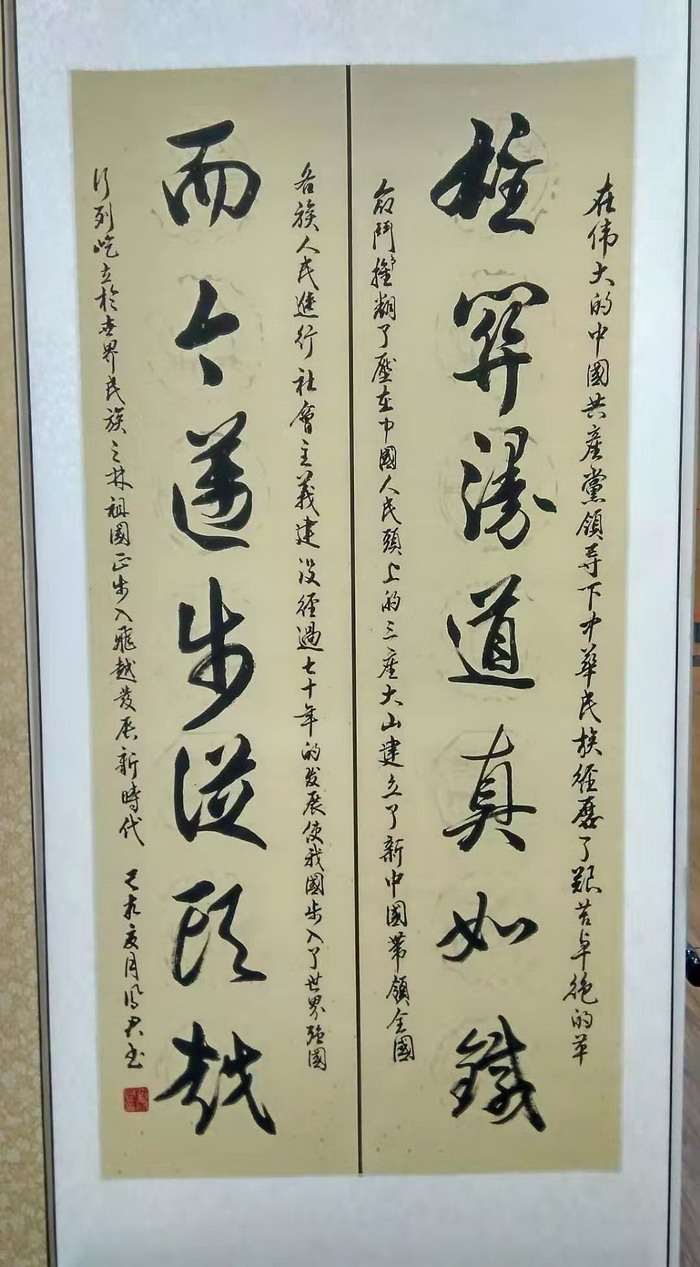 在伟大的中國共產黨領导下中華民族经歷了艱苦卓绝的革
雄關漫道真如鐵
命鬥争推翻了壓在中國人民頭上的三座大山建立了新中國帶領全國
各族人民進行社會主義建设经過七十年的发展使我國步入了世界強國
而今邁步從頭越
行列屹立於世界民族之林祖國正步入飛越發展新時代 己亥夏月鳳君书